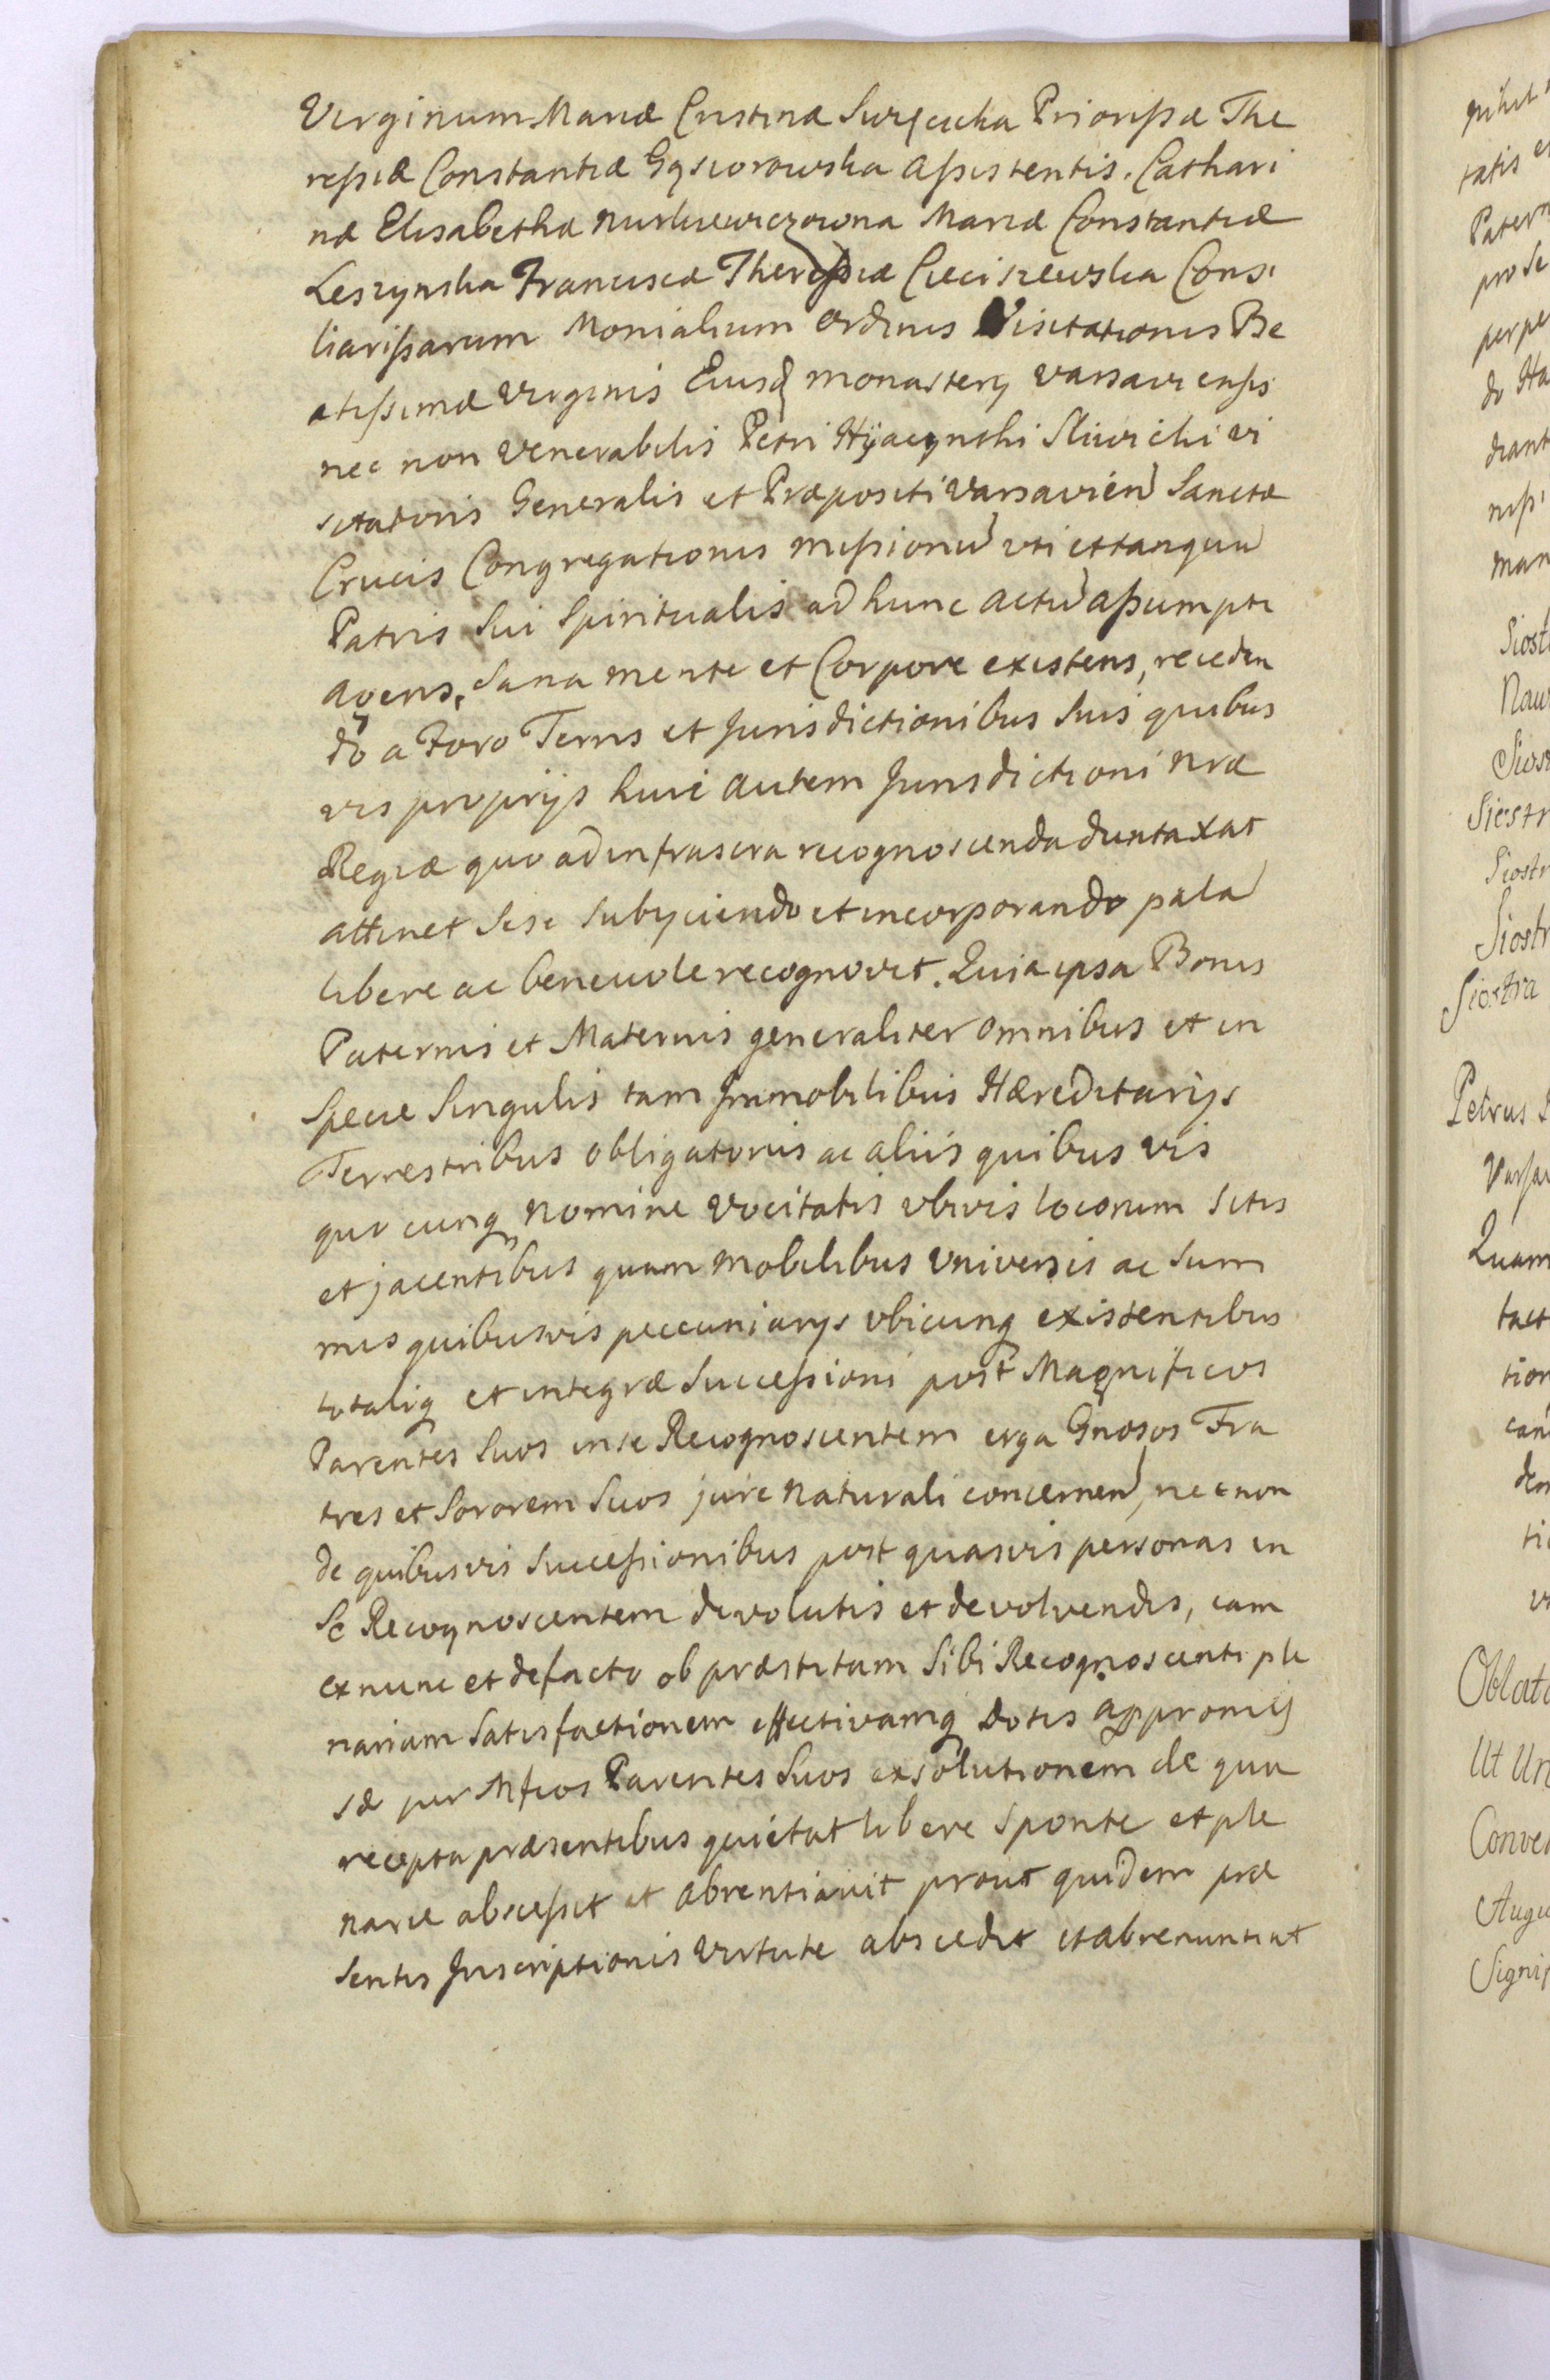 Virginum Mariæ Cristinæ Prioriſsæ The
reſsiæ Constantiæ Gąsiorowska Aſsistentis. Cathari
næ Elisabethæ Mariæ Constantiæ
Leszynska Franciscæ Thereſsiæ Cieciszewska Consi
liariſsarum Monialium Ordinis Visitationis Be
atiſsimæ Virginis Eiusdq monastery Varsaviensis
nec non Venerabilis Petri Hÿacynthi Sliwicki Vi
sitatoris Generalis et Præpositi Varsavien Sanctæ
Crucis Congregationis Miſsionu uti et tanqua
Patris Sui Spiritualis ad hunc actu aſsumpti
agens, sana mente et Corpore existens, receden
do a Foro Terris et Jurisdictionibus Suis quibus
vis proprijs huic autem Jurisdictioni nræ
Regiæ quo ad infrascra recognoscenda duntaxat
attinet Sese Subyciendo et incorporando pala
libere ac benevole recognovit. Quia ipsa Bonis
Paternis et Maternis generaliter omnibus et in
Specie Singulis tam Immobilibus Hæreditarijs
Terrestribus obligatoriis ac aliis quibus vis
quocunq nomine vocitatis ubivis locorum sitis
et jacentibus quam mobilibus Universis ac Sum
mis quibusvis peccuniarys ubicunq existentibus
totaliq et integræ Succeſsioni post Magnificos
Parentes Suos in se Recognoscentem erga Gnosos Fra
tres et Sororem Suos jure naturali concernen, nec non
de quibusvis Succeſsionibus post quasvis personas in
Se Recognoscentem devolutis et devolvendis, iam
ex nunc et de facto ob præstitam Sibi Recognoscenti ple
nariam Satisfactionem effectivamq dotis appromiſ
sæ per Mficos Parentes Suos exsolutionem de qua
recepta præsentibus quietat libere sponte et ple
narie absceſsit et abrentiavit prout quidem præ
sentis Inscriptionis Virtute abscedit et abrenuntiat